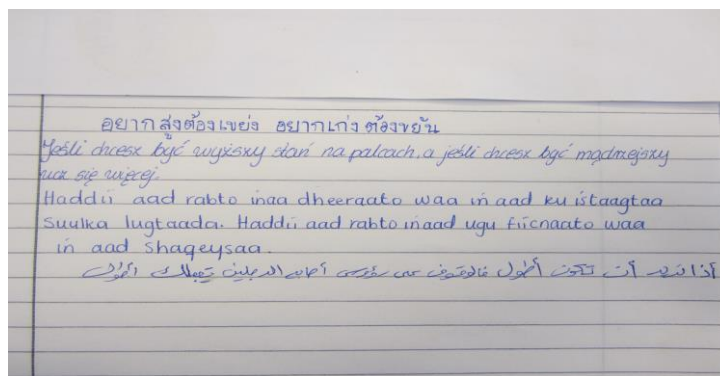 อยากสูงต้องเขย่ง อยากเก่งต้องขยัน
Jeśli chcesz być wyższy stań na palcach, a jeśli chcesz być mądrzejszy
ucz się więcej.
Haddii aad rabto inaa dheeraato waa in aad ku istaagtaa
Suulka lugtaada. Haddii aad rabto inaad ugu fiicnaato waa
in aad shaqeysaa.
أذا تريد أن تكون أطول فالوقوف على رؤوس أصابع الرجلين يجعلك أطول